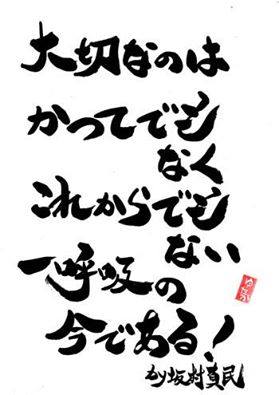 大切なのは
かつてでも
なく
これからでも
ない
一呼吸の
今である!
by坂村真民